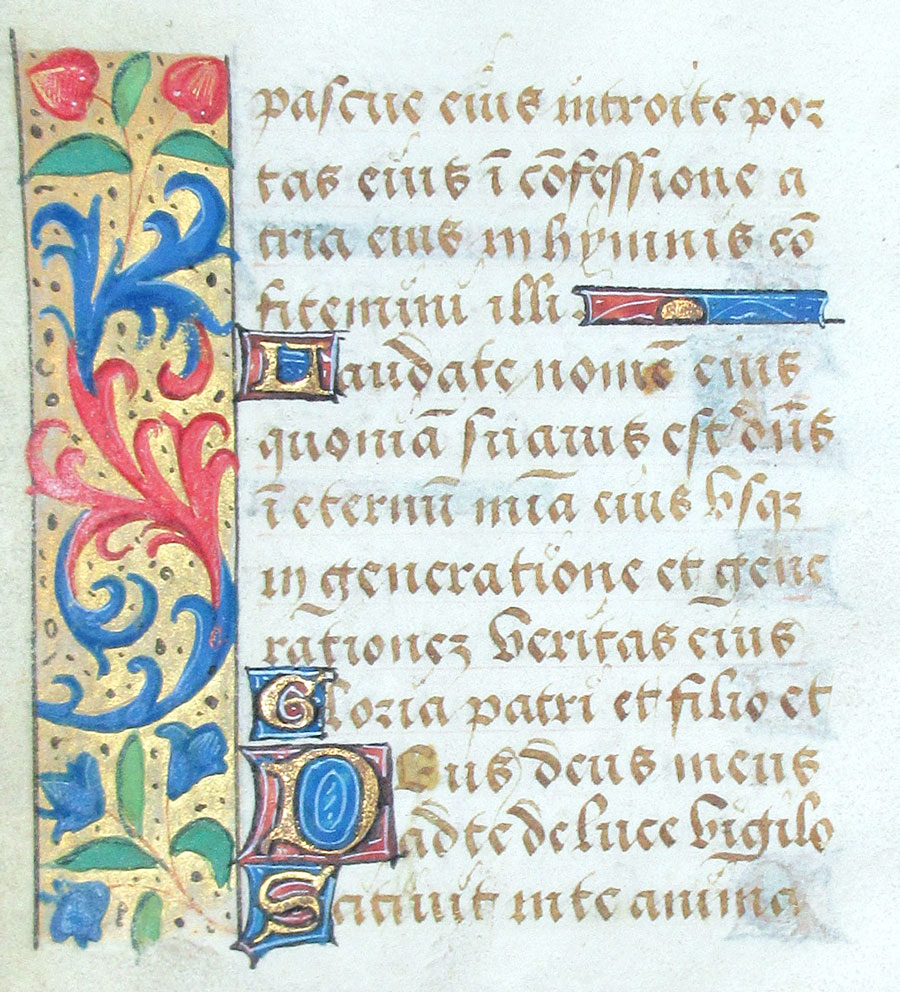 pascue eius introite por
tas eius ī cōfessione a
tria eius in hymnis cō
fitemini illi
Laudate nomē eius
quoniā suauis est dn̄s
ī eternū mīa eius vsqz
in generatione et gene
rationez veritas eius
Gloria patri et filio et
Deus deus meus
ad te de luce vigilo
Sitiuit in te anima